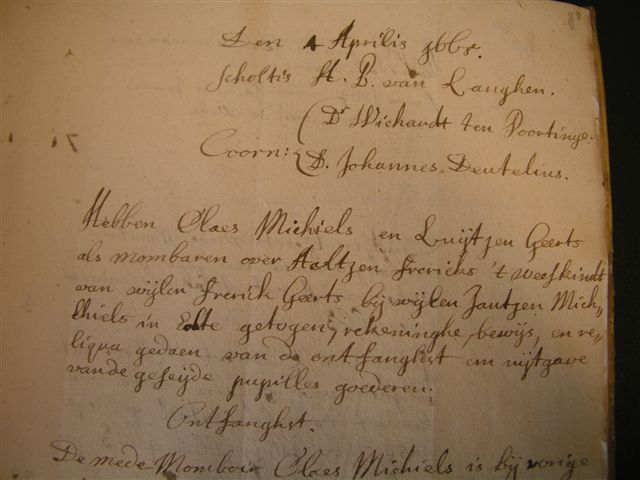 80
Den 4 Aprilis 1665.
Scholtis H. B. van Langhen.
Dr Wichardt ten Poortinge.
Coorn: D. Johannes Deutelius.
Hebben Claes Michiels en Luijtzen Geerts
als mombaren over Aaltzen Frericks 't weeskindt
van wijlen Frerik Geerts bij wijlen Jantzen Mich„
chiels in Echte getogen, rekeninghe, bewijs, en re„
liqua gedaen van de ontfanghst en uijtgave
vande geseijde pupilles goederen.
Ontfanghst.
De mede Momboir Claes Michiels is bij vorige